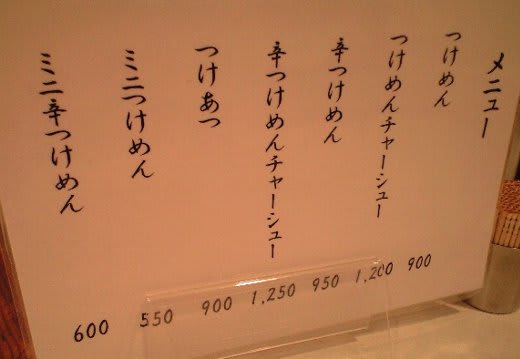 メニュー
つけめん 900
つけめんチャーシュー 1,200
辛つけめん 950
辛つけめんチャーシュー 1,250
つけあつ 900
ミニつけめん 550
ミニ辛つけめん 600